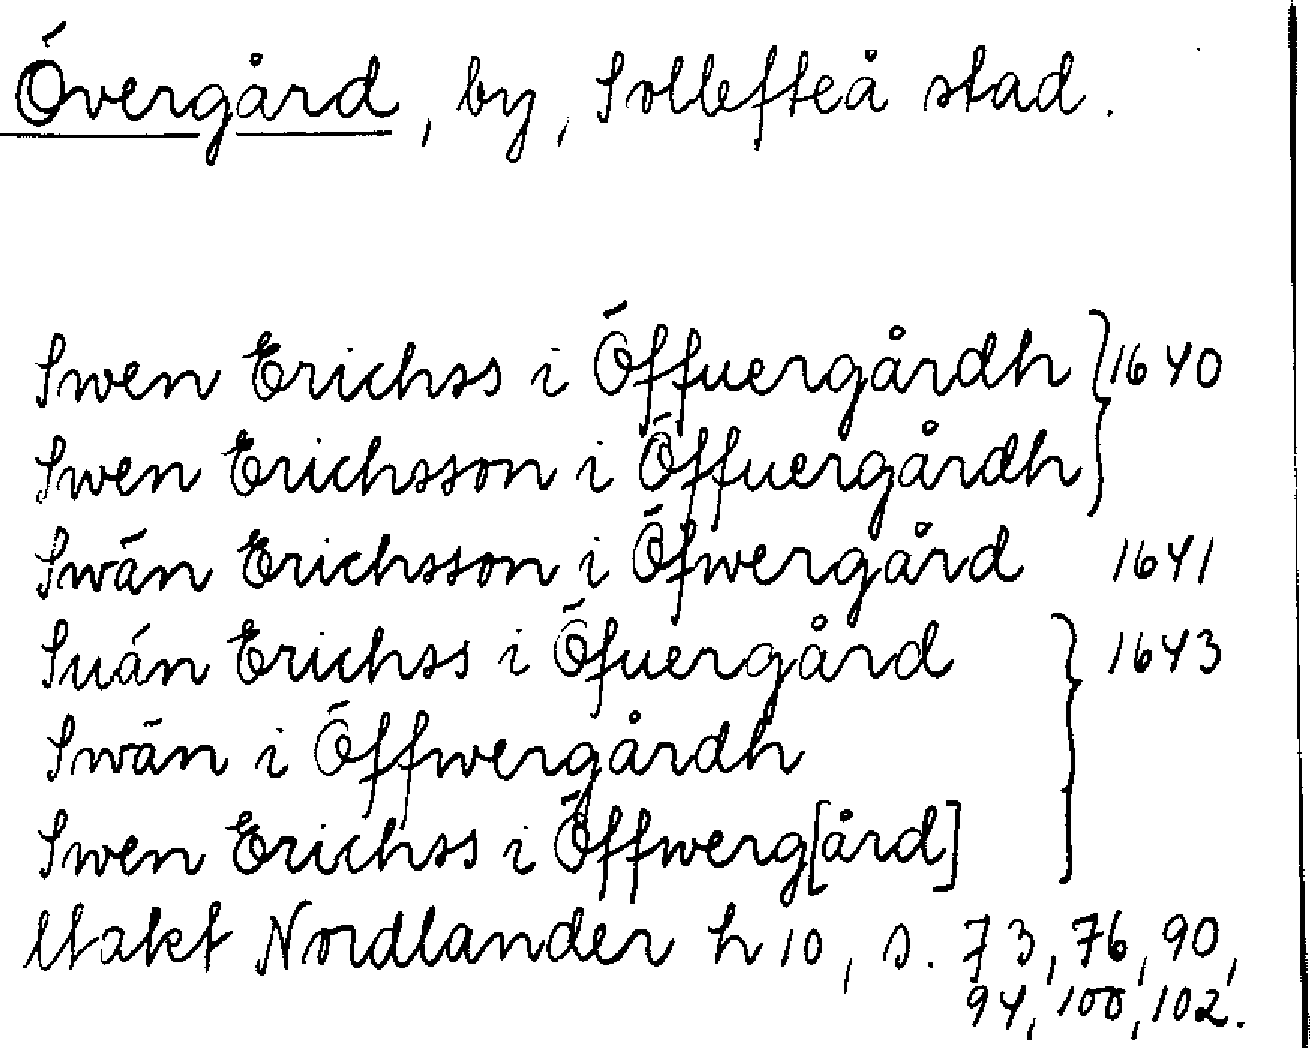 Övergård, by, Sollefteå stad.
Swen Erichss i Öffuergårdh } 1640
Swen Erichsson i Öffuergårdh
Swän Erichsson i Öfwergård 1641
Suän Erichss i Öfuergård } 1643
Swän i Öffwergårdh
Swen Erichss i Öffwerg[ård]
Utakt Nordlander h 10, s. 73, 76, 90,
94, 100, 102.